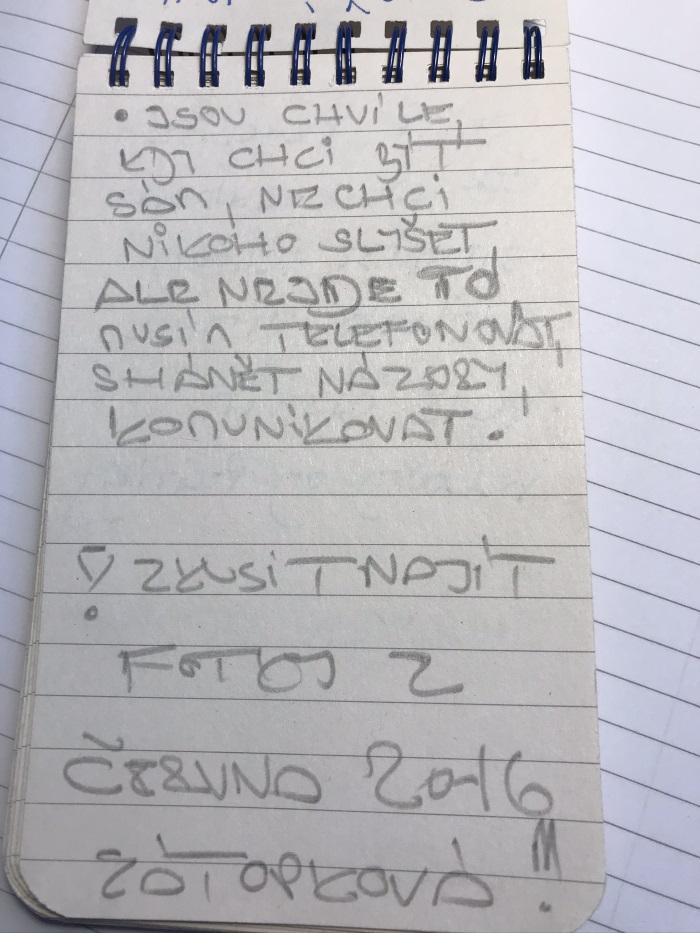 • JSOU CHVÍLE,
KDY CHCI BÝT
SÁM, NECHCI
NIKOHO SLYŠET,
ALE NEJDE TO
MUSÍM TELEFONOVAT,
SHÁNĚT NÁZORY,
KOMUNIKOVAT.
! ZKUSIT NAJÍT
Z
ČERVNA 2016